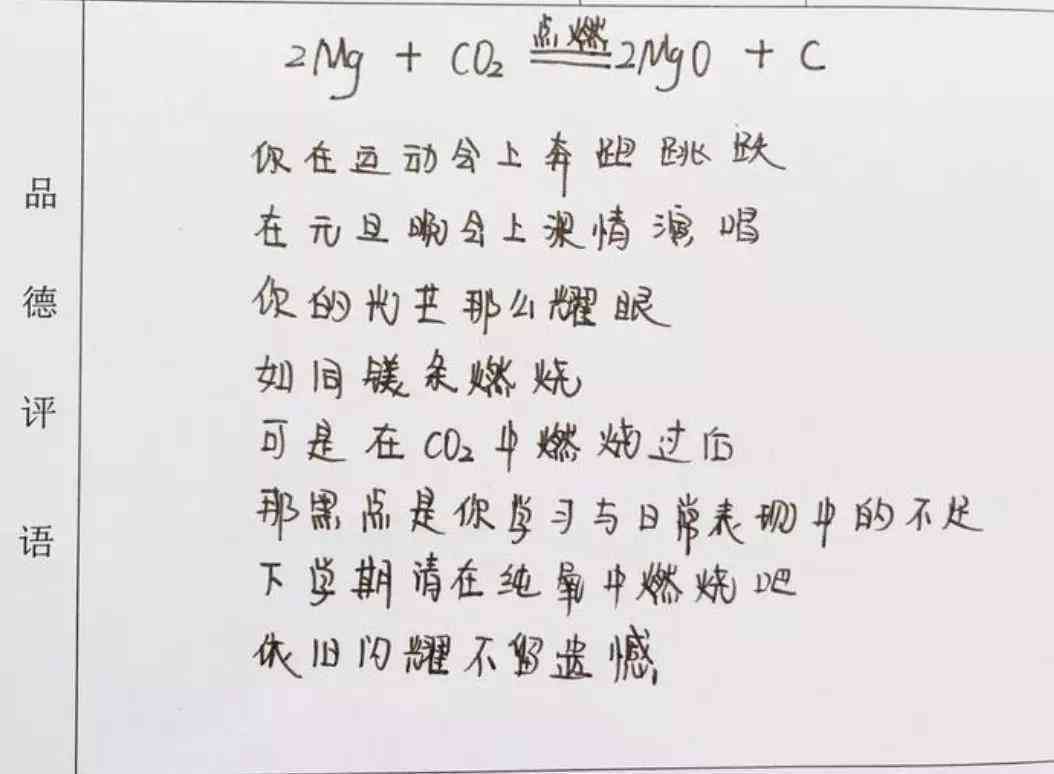 2Mg + CO₂ 点燃 2MgO + C
你在运动会上奔跑跳跃
在元旦晚会上深情演唱
你的光芒那么耀眼
如同镁条燃烧
可是在CO₂中燃烧过后
那黑点是你学习与日常表现中的不足
下学期请在纯氧中燃烧吧
依旧闪耀不留遗憾
品德评语